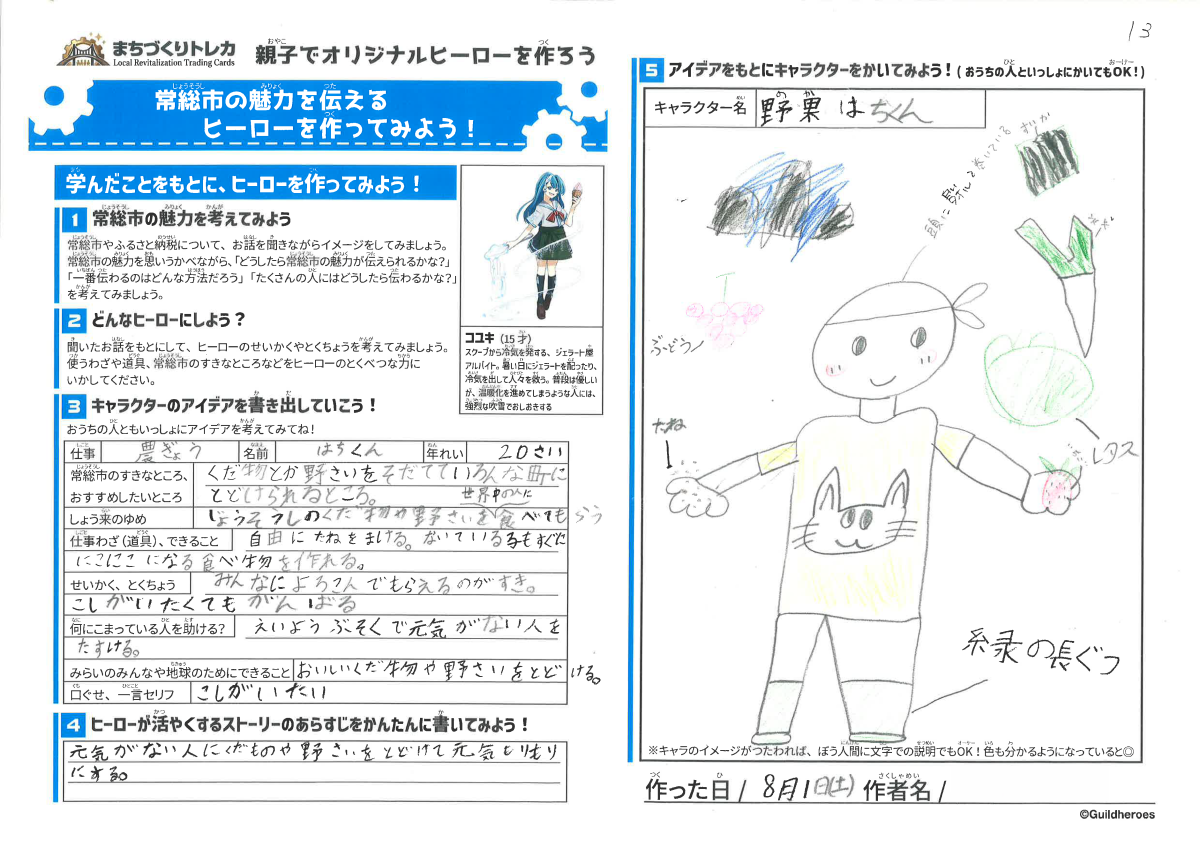 まちづくりトレカ
Local Revitalization Trading Cards
親子でオリジナルヒーローを作ろう
常総市の魅力を伝える
ヒーローを作ってみよう！
学んだことをもとに、ヒーローを作ってみよう！
1 常総市の魅力を考えてみよう
常総市やふるさと納税について、お話を聞きながらイメージをしてみましょう。
常総市の魅力を思いうかべながら、「どうしたら常総市の魅力が伝えられるかな？」
「一番伝わるのはどんな方法だろう」「たくさんの人にはどうしたら伝わるかな？」
を考えてみましょう。
2 どんなヒーローにしよう？
聞いたお話をもとにして、ヒーローのせいかくやとくちょうを考えてみましょう。
使うわざや道具、常総市のすきなところなどをヒーローのとくべつな力に
いかしてください。
ココユキ（15才）
スクープから冷気を発する、ジェラート屋
アルバイト。暑い日にジェラートを配ったり、
冷気を出して人々を救う。普段は優しい
が、温暖化を進めてしまうような人には、
強烈な吹雪でおしおきする
3 キャラクターのアイデアを書き出していこう！
おうちの人ともいっしょにアイデアを考えてみてね！
仕事 農ぎょう 名前 はちくん 年れい 20さい
常総市のすきなところ、 くだ物とか野さいをそだてていろんな町に
おすすめしたいところ とどけられるところ。
世界中の人に
しょう来のゆめ じょうそうしのくだ物や野さいを食べてもらう
仕事わざ（道具）、できること 自由にたねをまける。ないている子もすぐに
にこにこになる食べ物を作れる。
せいかく、とくちょう みんなによろこんでもらえるのがすき。
こしがいたくてもがんばる
何にこまっている人を助ける？ えいようぶそくで元気がない人を
たすける。
みらいのみんなや地球のためにできること おいしいくだ物や野さいをとどける。
口ぐせ、一言セリフ こしがいたい
4 ヒーローが活やくするストーリーのあらすじをかんたんに書いてみよう！
元気がない人にくだものや野さいをとどけて元気もりもり
にする。
13
5 アイデアをもとにキャラクターをかいてみよう！（おうちの人といっしょにかいてもOK！）
キャラクター名 野菓はちくん
頭に タオルをまいている
ぶどう
たね
レタス
緑の長ぐつ
※キャラのイメージがつたわれば、ぼう人間に文字での説明でもOK！色も分かるようになっていると◎
作った日 / 8月1日(土) 作者名 /
©Guildheroes